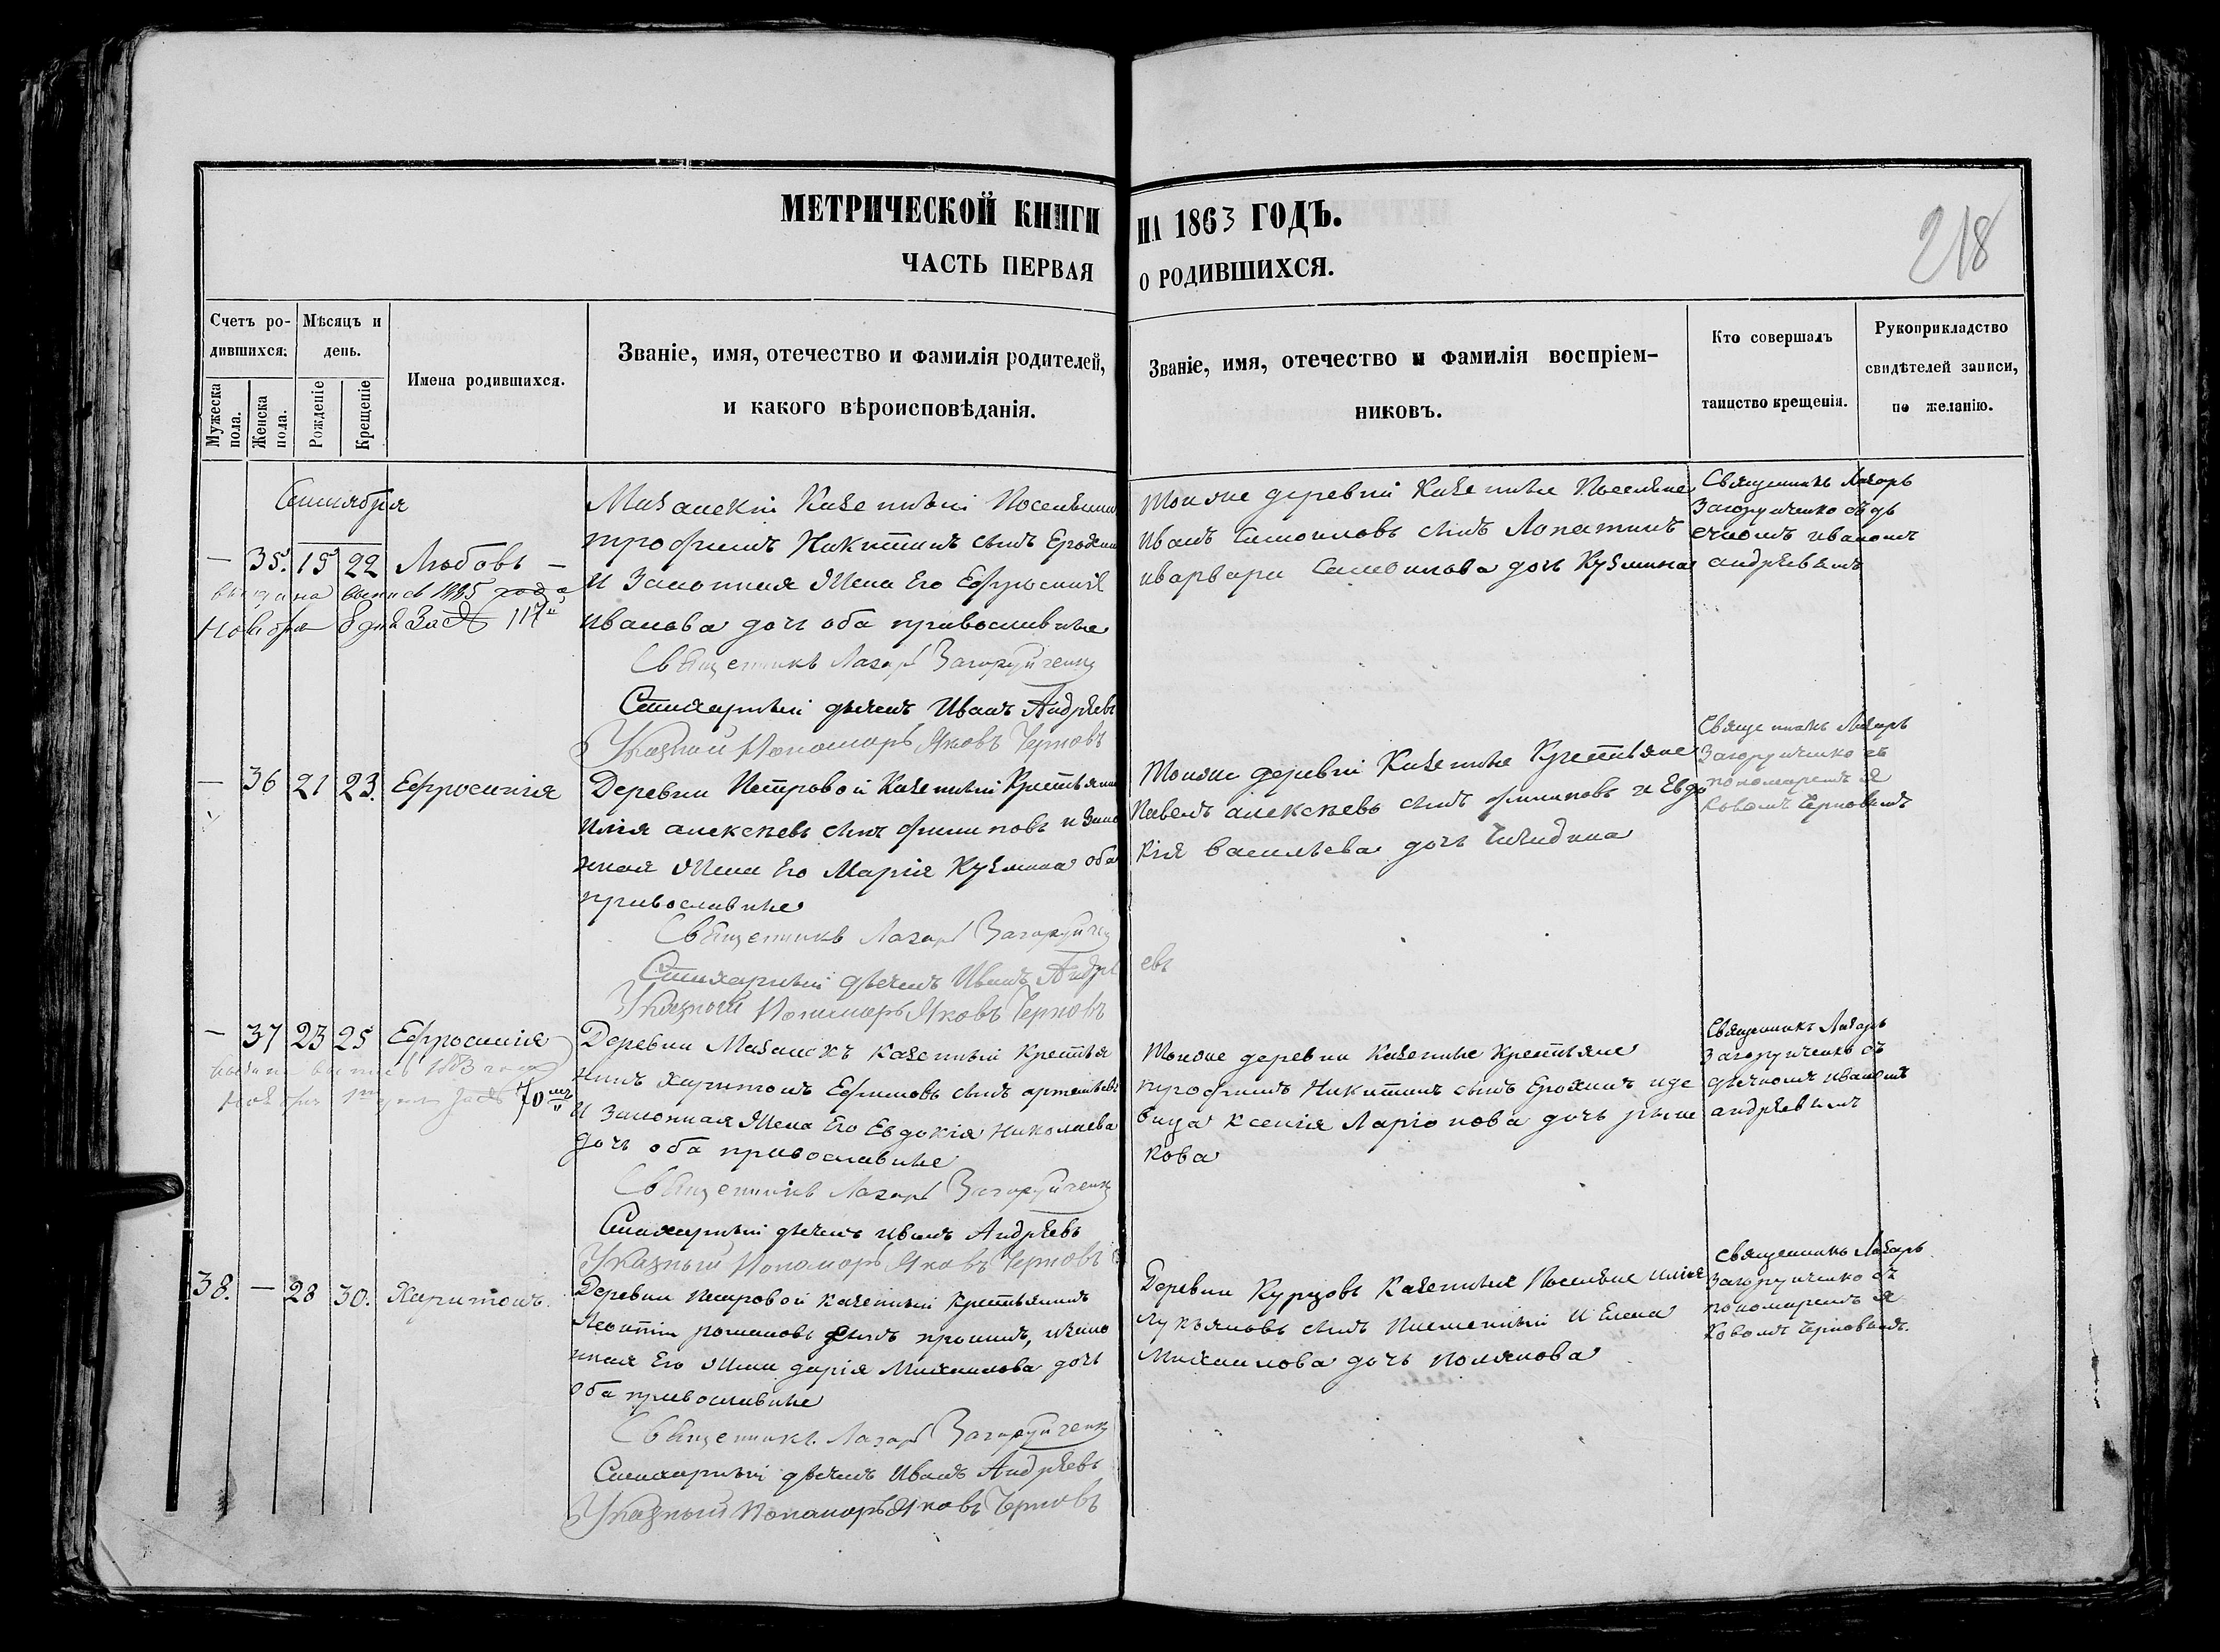 МЕТРИЧЕСКОЙ КНИГИ НА 1863 ГОДЪ.
ЧАСТЬ ПЕРВАЯ О РОДИВШИХСЯ.
218
Счетъ ро-
дившихся.
Мужеска пола.
Женска пола.
Мѣсяцъ и
день.
Рожденіе
Крещеніе
Имена родившихся.
Званіе, имя, отечество и фамилія родителей,
и какого вѣроисповѣданія.
Званіе, имя, отечество и фамилія воспріем-
никовъ.
Кто совершалъ
таинство крещенія.
Рукоприкладство
свидѣтелей записи,
по желанію.
Сентября
— 35. 15 22 Любовь —
Казенный
трофимъ Никитинъ сынъ
и Законная Жена Его Ефросинія
иванова дочь оба православные
Священникъ Лазарь Загоруйченко
Стихарный дьячекъ Иванъ Андрѣевъ
Указный Пономарь Яковъ Черновъ
Тоиже деревни Казенные Поселяне
Иванъ сынъ Лопатинъ
иварвара дочь Кузмина
Священникъ Лазарь
Загоруйченко съ дь
ячкомъ иваномъ
андрѣевымъ
— 36 21 23. Ефросинія
Деревни Петровой Казенный Крестьянинъ
Илія алексѣевъ сынъ филиповъ и Зако
нная Жена Его Марія Кузмина оба
православные
Священникъ Лазарь
Стихарный дьячекъ Иванъ Андрѣ
евъ
Указный Пономарь Яковъ Черновъ
Тоиже деревни Казенные Крестьяне
Павелъ алексѣевъ сынъ филиповъ и Евдо
кія васильева дочь
Священникъ Лазарь
Загоруйченко съ
пономаремъ Я
ковомъ Черновымъ
— 37 23 25 Ефросинія
Деревни Казенный Крестья
нинъ Харитонъ Ефимовъ сынъ
И Законная Жена Его Евдокія Николаева
дочь оба православные
Священникъ Лазарь Загоруйченко
Стихарный дьячекъ иванъ Андрѣевъ
Указный Пономарь Яковъ Черновъ
Тоиже деревни Казенные Крестьяне
трофимъ Никитинъ сынъ Ерохинъ иде
вица Ксенія Ларіонова дочь
кова
Священникъ Лазарь
Загоруйченко съ
дьячкомъ иваномъ
андрѣевымъ
38. — 28 30. Харитонъ.
Деревни Петровой казенный Крестьянинъ
Леонтій романовъ сынъ изако
нная Его Жена дарія Михаилова дочь
оба православные
Священникъ Лазарь Загоруйченко
Стихарный дьячекъ Иванъ Андрѣевъ
Указный Пономарь Яковъ Черновъ
Деревни Казенные Поселяне илія
лукьяновъ сынъ И Елена
Михаилова дочь полякова
Священникъ Лазарь
Загоруйченко съ
пономаремъ Я
ковомъ Черновымъ.